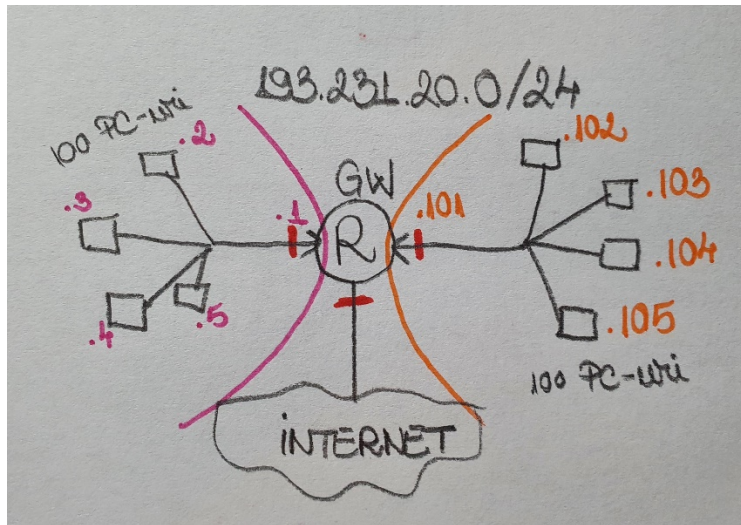 193.231.20.0/24
100 PC-uri
.2
.3
.4
.5
GW
.1
R
.101
.102
.103
.104
.105
100 PC-uri
INTERNET